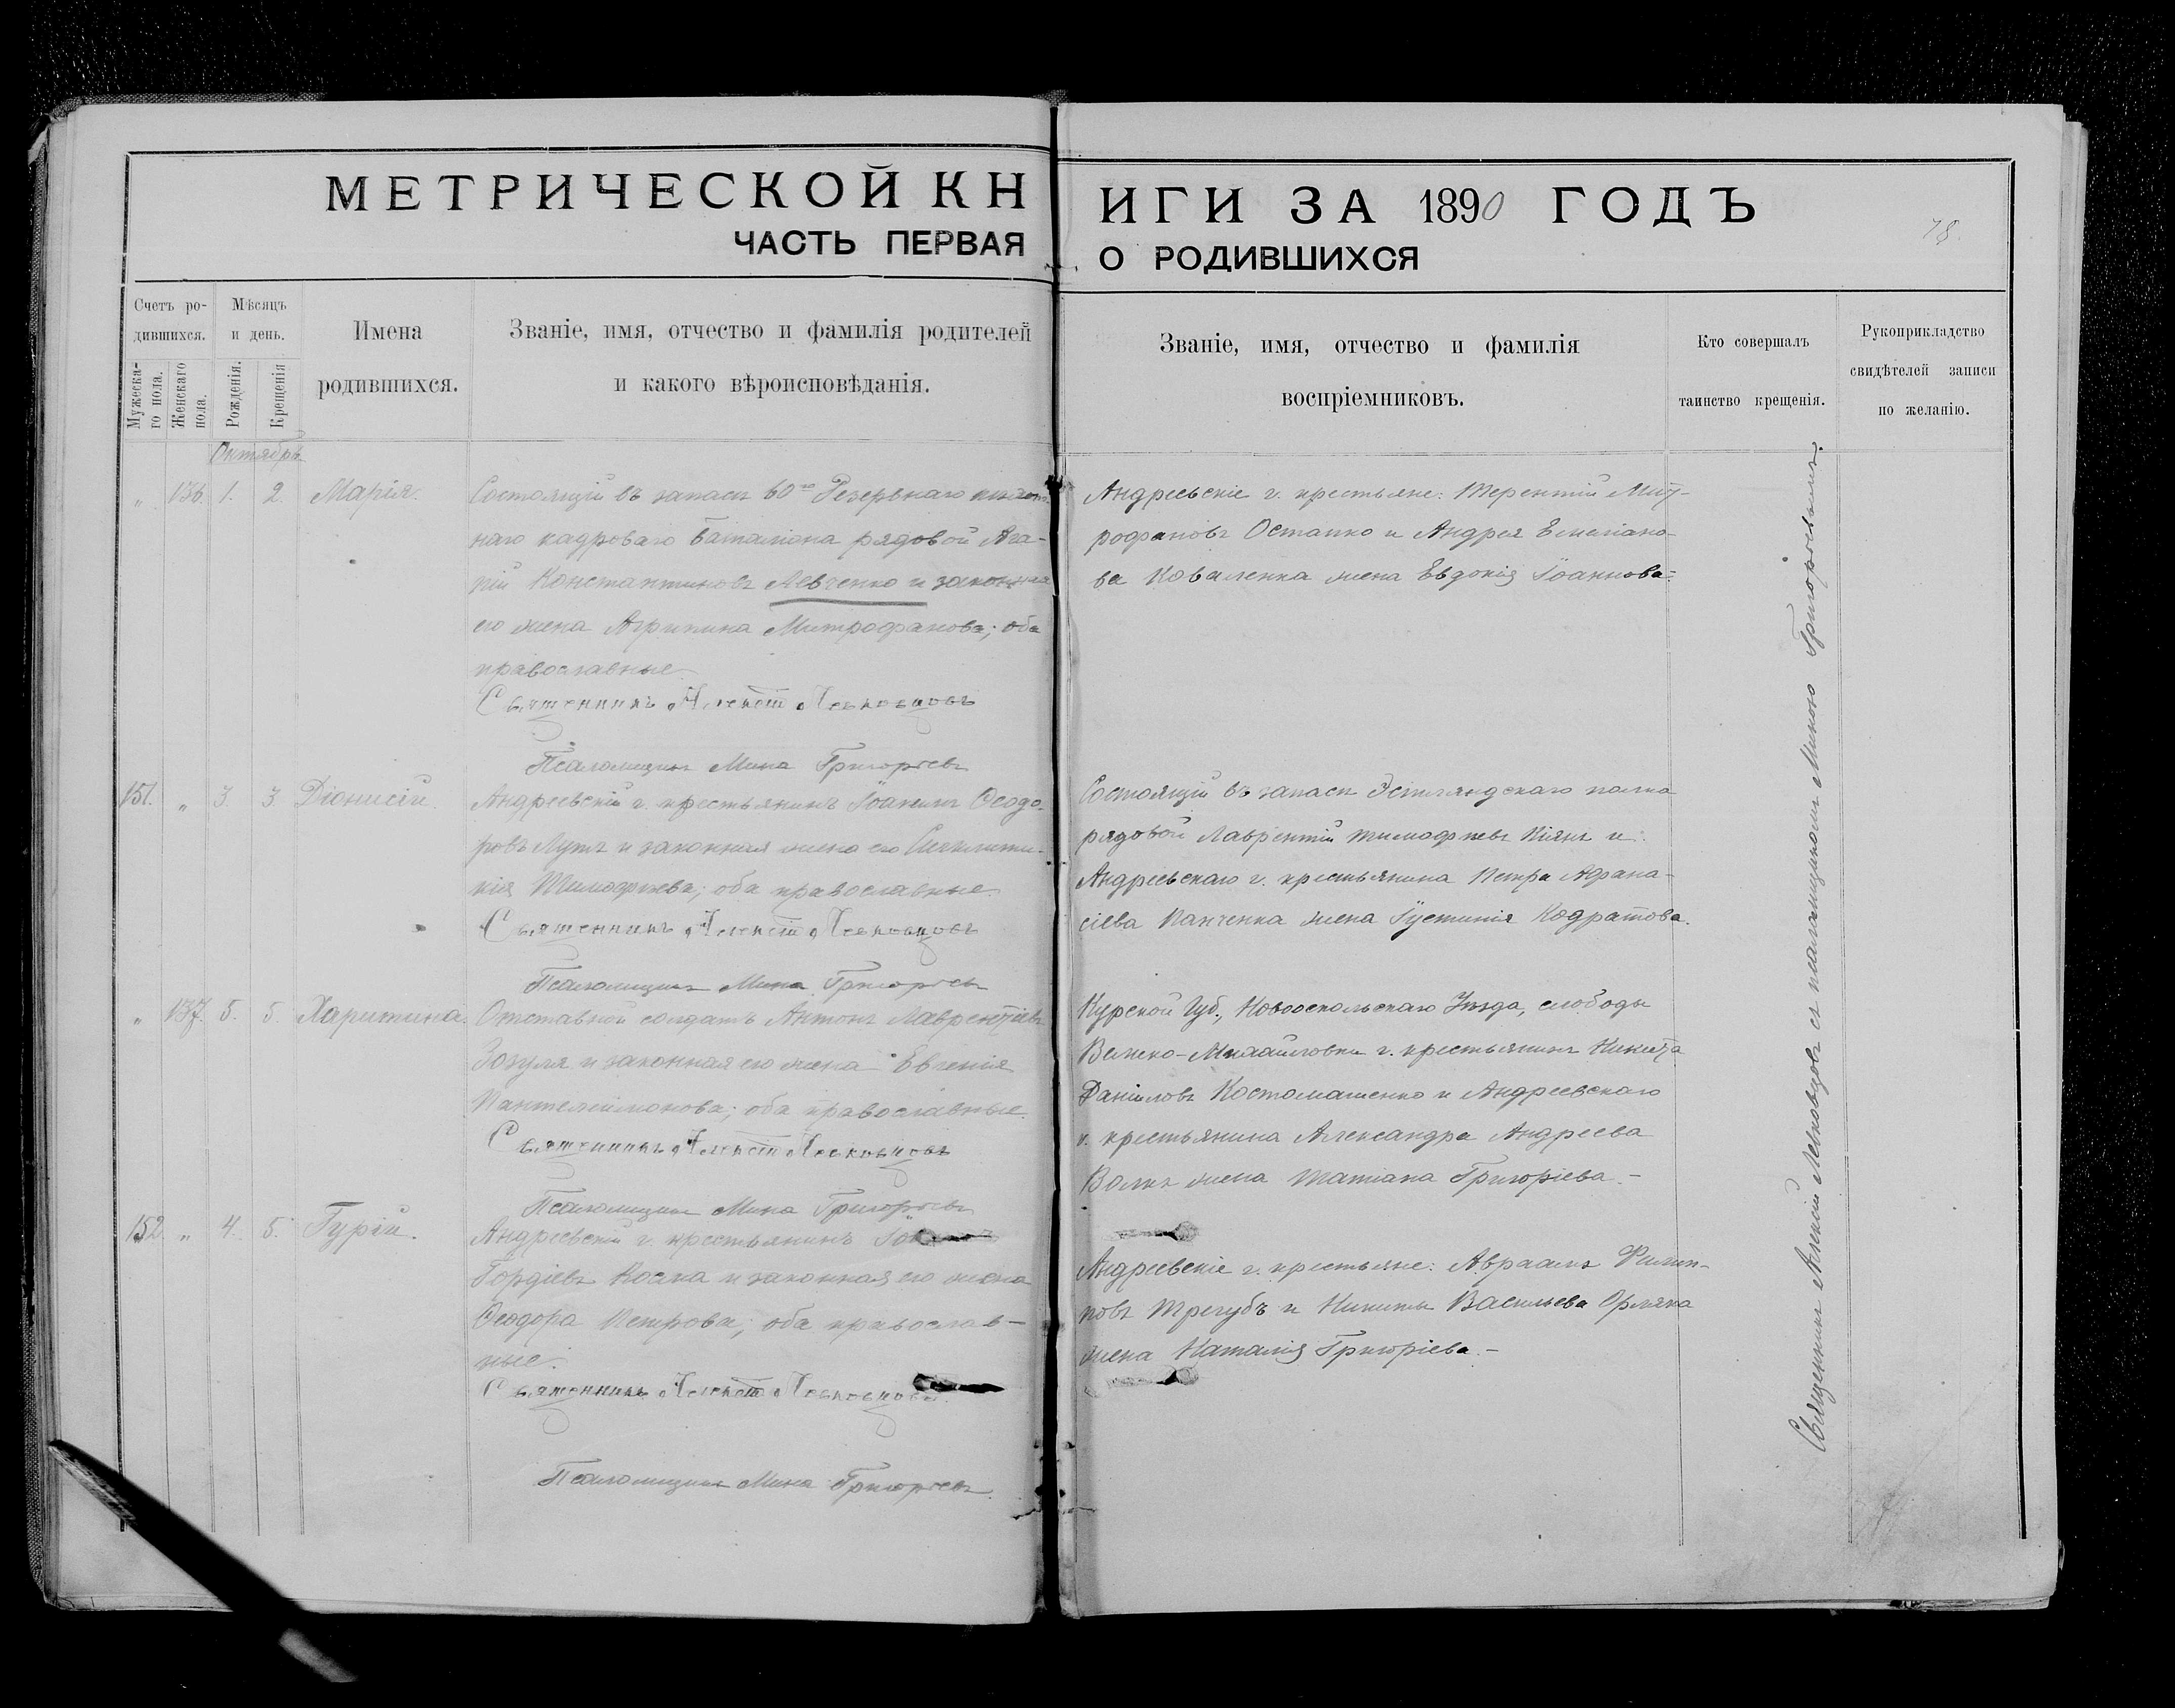 МЕТРИЧЕСКОЙ КНИГИ ЗА 1890 ГОДЪ
ЧАСТЬ ПЕРВАЯ О РОДИВШИХСЯ
78.
Счетъ ро-
дившихся.
Мужеска-
го пола.
Женскаго
пола.
Мѣсяцъ
и день.
Рожденія.
Крещенія
Имена
родившихся.
Званіе, имя, отчество и фамилія родителей
и какого вѣроисповѣданія.
Званіе, имя, отчество и фамилія
воспріемниковъ.
Кто совершалъ
таинство крещенія.
Рукоприкладство
свидѣтелей записи
по желанію.
Октябрь
„ 136. 1. 2. Марія.
Состоящій въ запасѣ 60го Резервнаго
наго кадроваго баталіона рядовой Ага-
пій Константиновъ Левченко и законная
его жена Агрипина Митрофанова; оба
православные.
Священникъ Алексій Левковцовъ
Псаломщикъ Мина Григорьевъ
Андреевскіе г. крестьяне: Терентій Мит-
рофановъ Остапко и Андрея Емеліано-
ва Коваленка жена Евдокія Іоаннова.
151. „ 3. 3. Діонисій.
Андреевскій г. крестьянинъ Іоаннъ Ѳеодо-
ровъ и законная жена его Синклити-
кія Тимофѣева; оба православные.
Священникъ Алексій Левковцовъ
Псаломщикъ Мина Григорьевъ
Состоящій въ запасѣ Эстляндскаго полка
рядовой Лаврентій Тимофѣевъ Кіянъ и
Андреевскаго г. крестьянина Петра Афана-
сіева Панченка жена Іустинія Кодратова.
„ 137. 5. 5. Харитина.
Отставной солдатъ Антонъ Лаврентіевъ
Зозуля и законная его жена Евгенія
Пантелеимонова; оба православные.
Священникъ Алексій Левковцовъ
Псаломщикъ Мина Григорьевъ
Курской Губ., Новооскольскаго Уѣзда, слободы
Велико-Михайловки г. крестьянинъ Никита
Даніиловъ Костомашенко и Андреевскаго
г. крестьянина Александра Андреева
Волкъ жена Татіана Григоріева.-
152. „ 4. 5. Гурій.
Андреевскій г. крестьянинъ
Гордіевъ и законная его жена
Ѳеодора Петрова; оба православ-
ные.
Священникъ Алексій Левковцовъ
Псаломщикъ Мина Григорьевъ
Андреевскіе г. крестьяне: Авраамъ Филип-
повъ Трегубъ и Никиты Васильева Орляка
жена Наталія Григоріева.-
Священникъ Алексій Левковцовъ съ псаломщикомъ Миною Григорьевымъ.